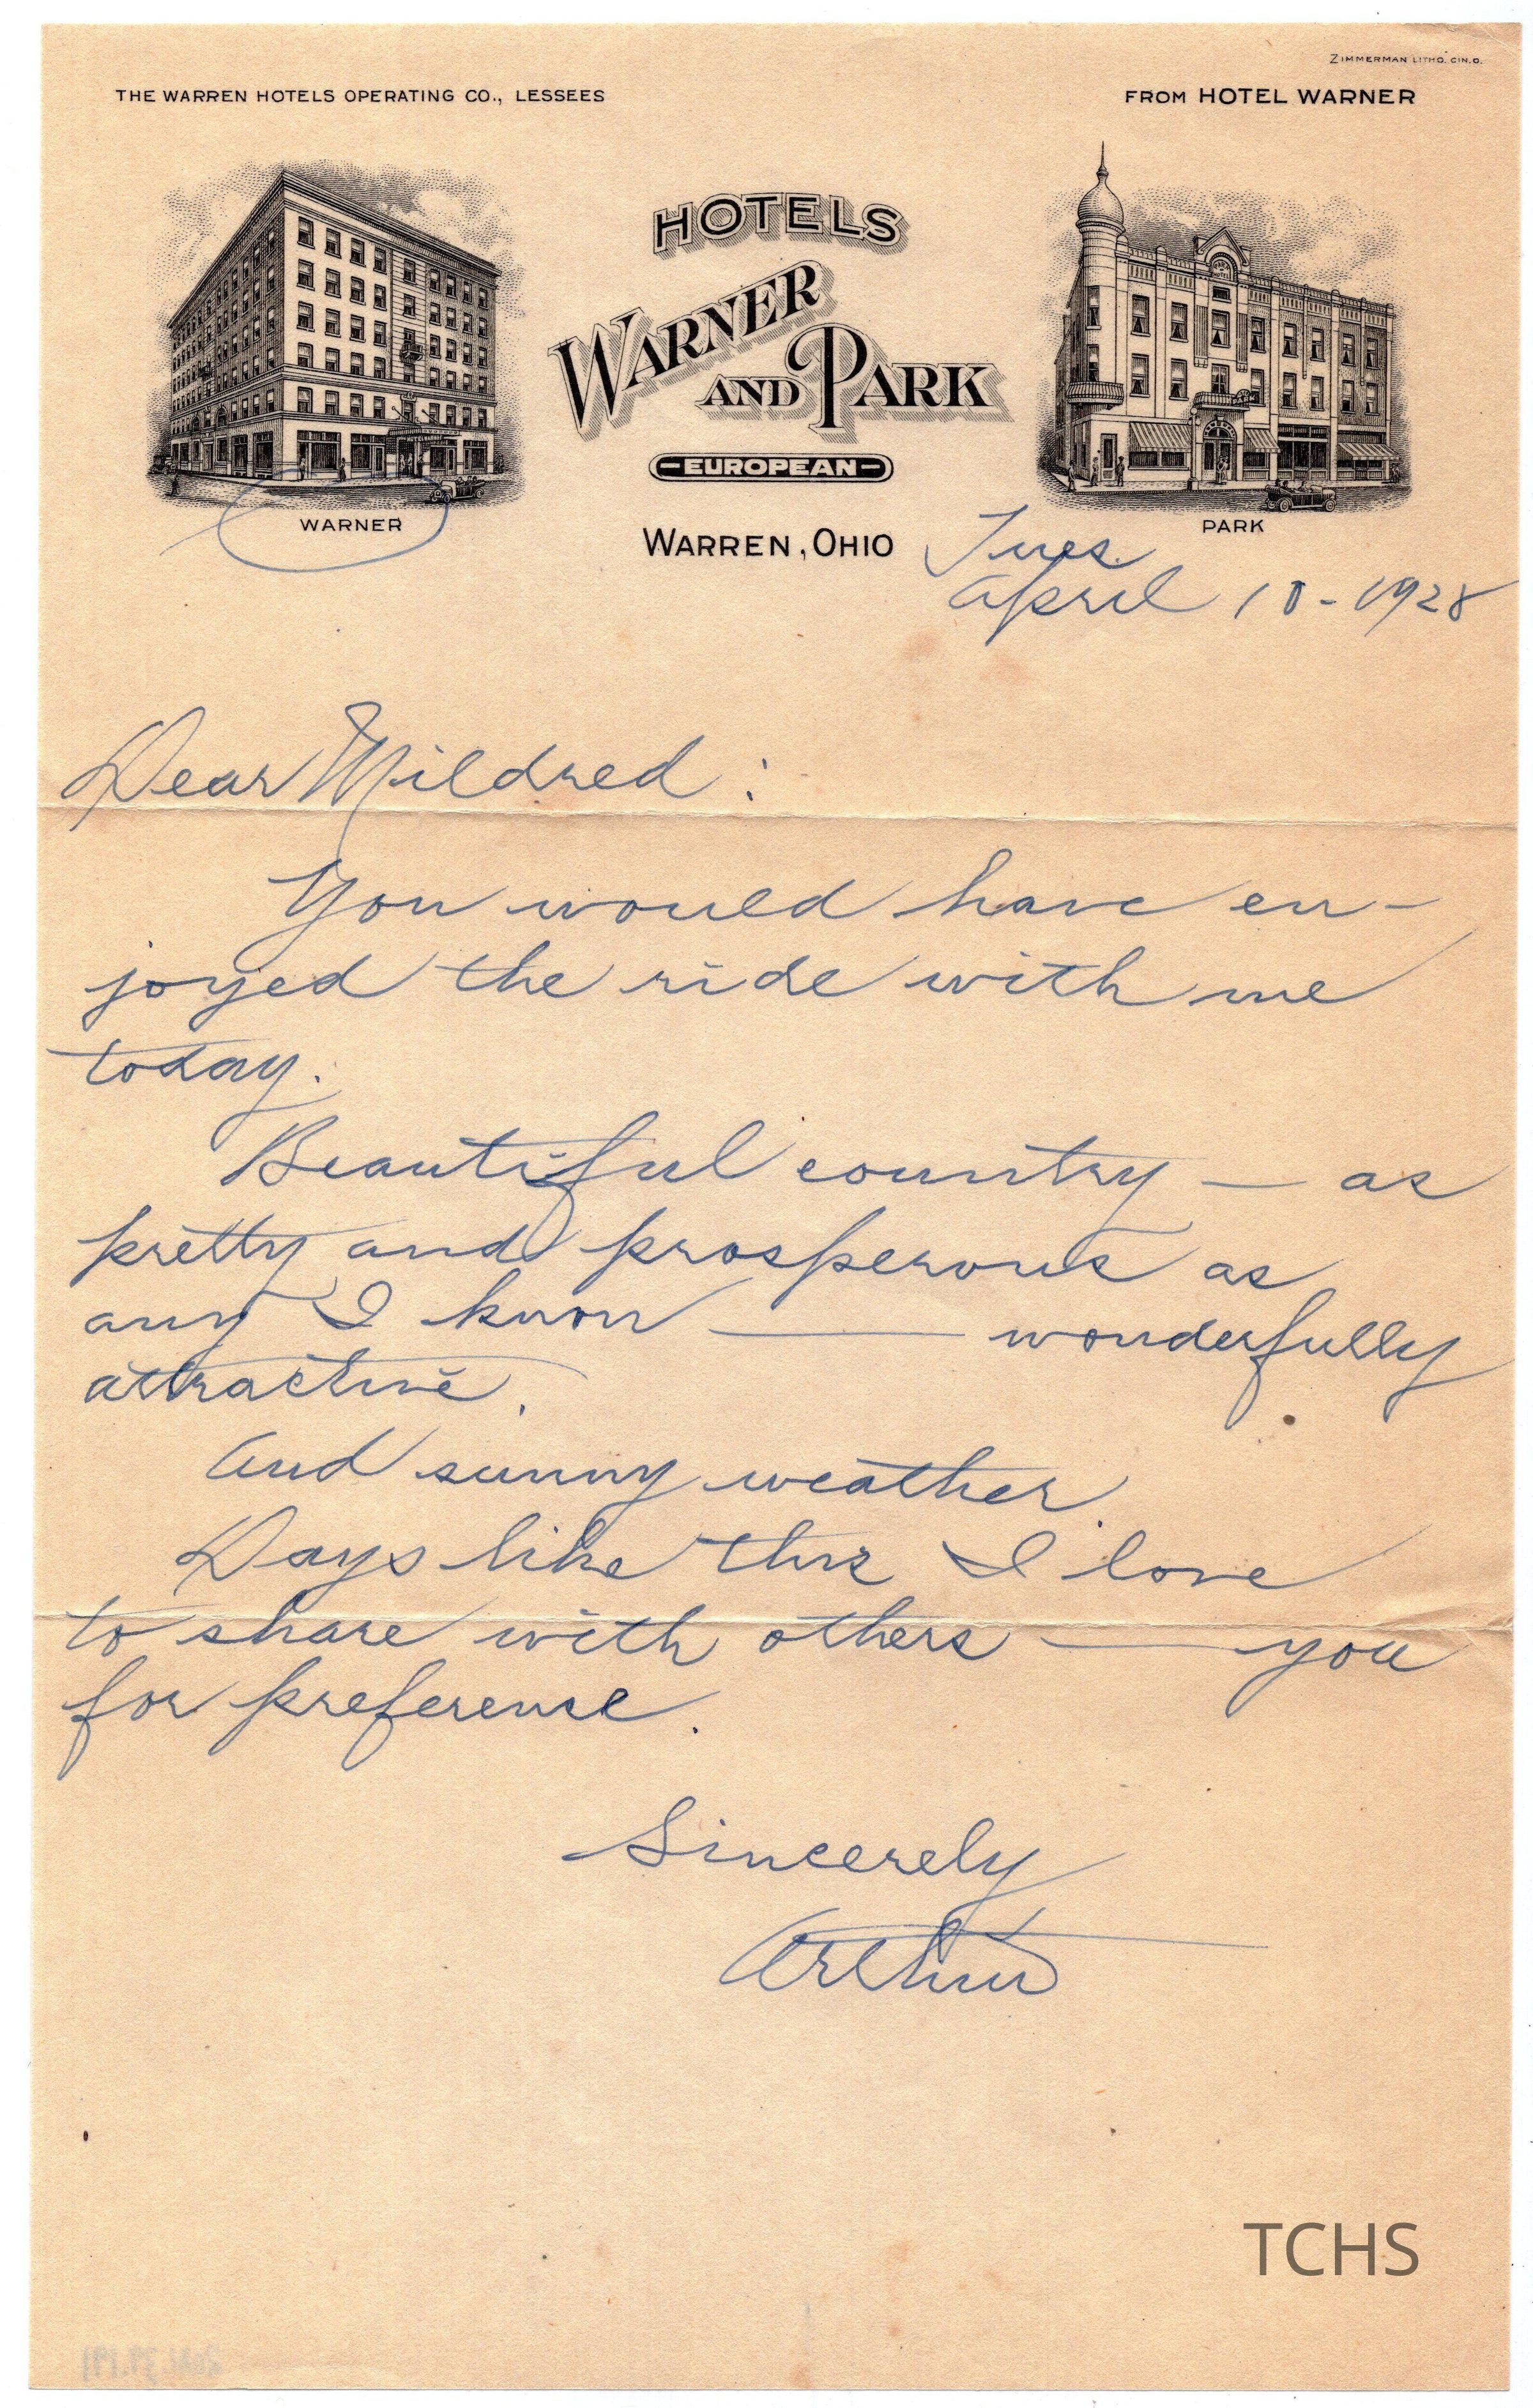 ZIMMERMAN LITHO. CIN. O.
THE WARREN HOTELS OPERATING CO., LESSEES
FROM HOTEL WARNER
HOTELS
WARNER
AND PARK
EUROPEAN
WARNER
PARK
WARREN, OHIO
Tues.
April 10-1928
Dear Mildred:
You would have en-
joyed the ride with me
today.
Beautiful country — as
pretty and prosperous as
any I know — wonderfully
attractive.
And sunny weather.
Days like this I love
to share with others — you
for preference.
Sincerely
Arthur
TCHS